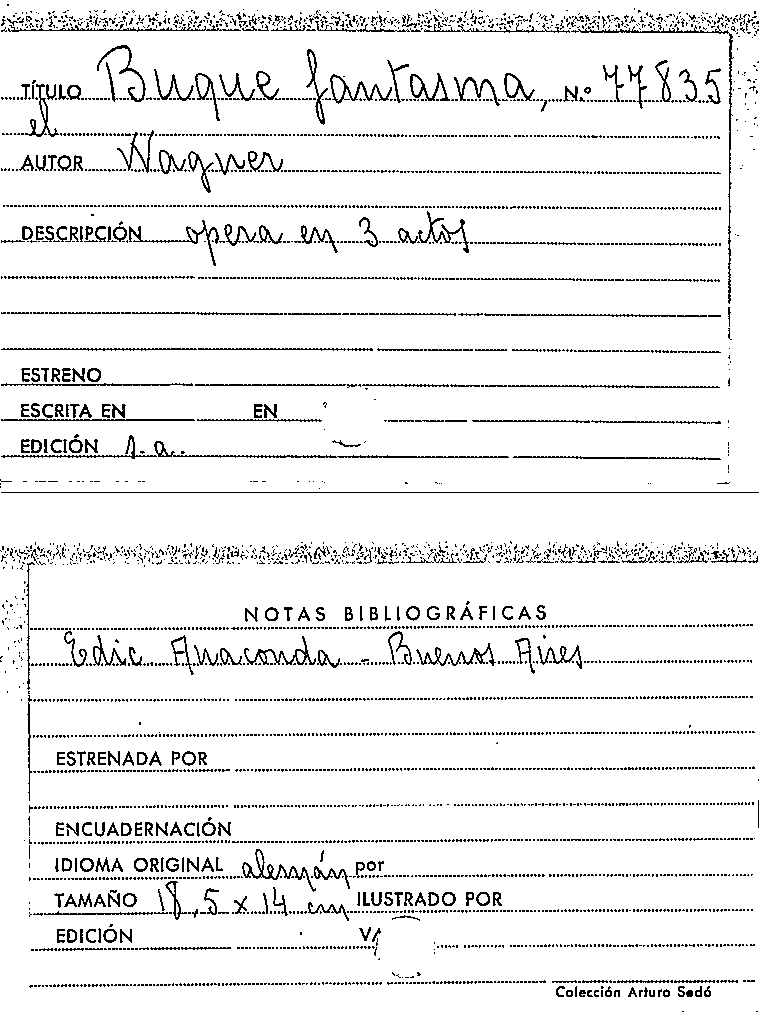 TÍTULO Buque fantasma, N.º 77835
el
AUTOR Wagner
DESCRIPCIÓN opera en 3 actos
ESTRENO
ESCRITA EN EN
EDICIÓN s.a.
NOTAS BIBLIOGRÁFICAS
Edic Anaconda - Buenos Aires
ESTRENADA POR
ENCUADERNACIÓN
IDIOMA ORIGINAL alemán por
TAMAÑO 18,5 x 14 cm ILUSTRADO POR
EDICIÓN
Colección Arturo Sedó